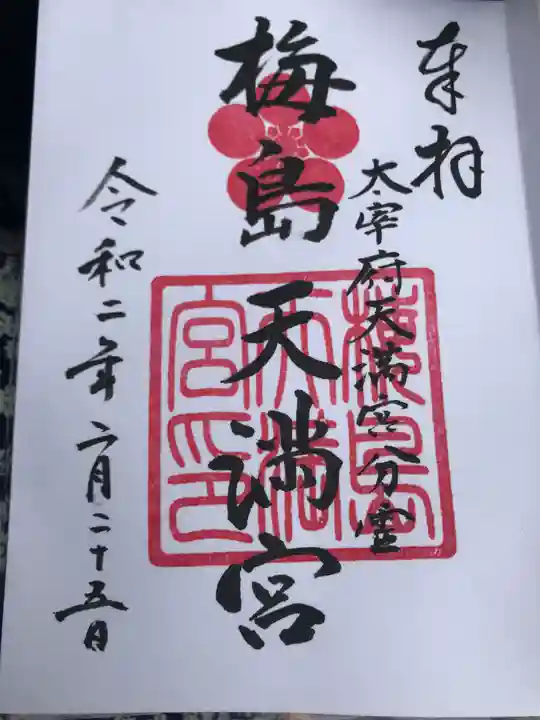 奉拝
太宰府天満宮分霊
梅島天満宮
梅島天満宮印
令和二年六月二十五日